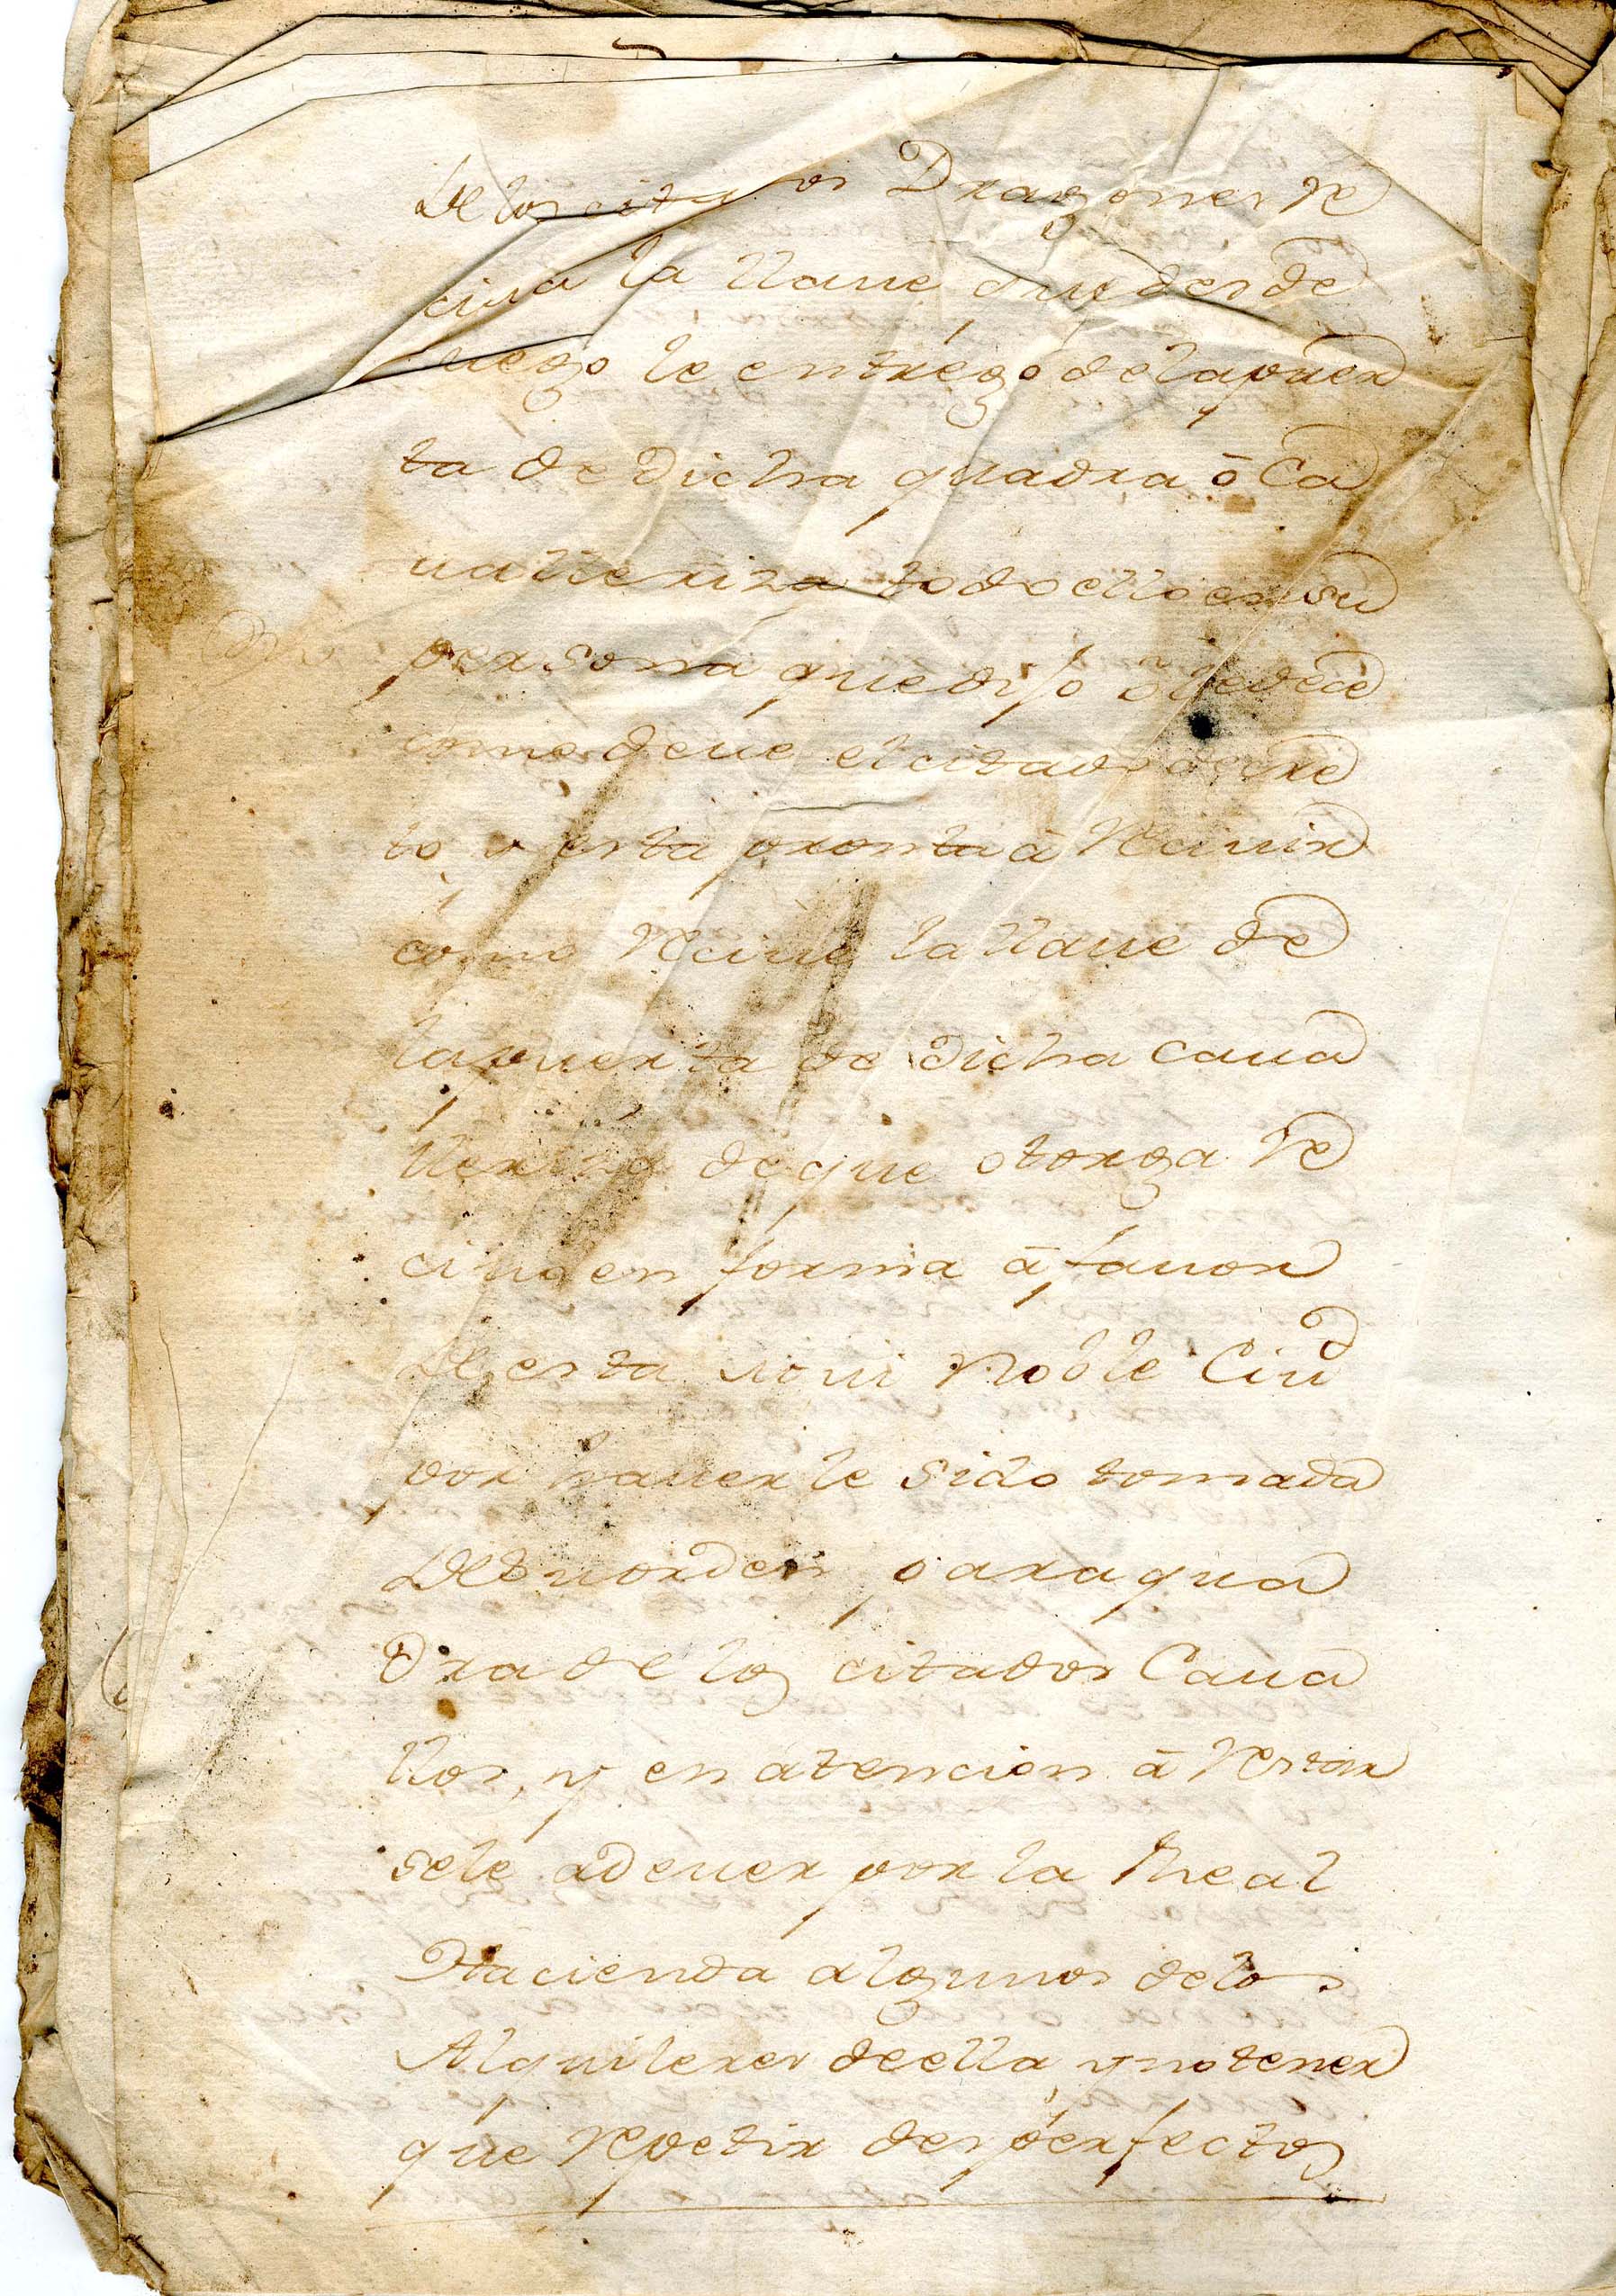 De los citados Dragones re
ciua la llaue que desde
luego le entrego de la puer
ta de dicha quadra ô Ca
ualleriza todo ello en su
persona que dijo ôbedece
como deue el citado decre
to y esta pronta â Reciuir
como Reciue la llaue de
la puerta de dicha Caua
lleriza de que otorga Re
ciuo en forma â fauor
de esta mui Noble Ciud
por hauerle sido tomada
de su orden para qua
dra de los citados Caua
llos, y en atencion â Restar
sele adeuer por la Rreal
Hacienda algunos de los
Alquileres de ella y no tener
que Repetir desperfectos